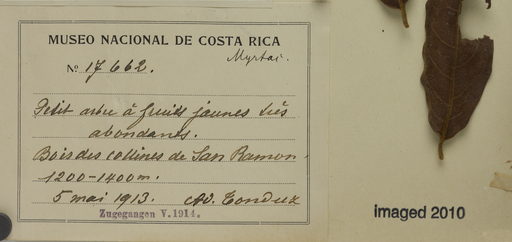 MUSEO NACIONAL DE COSTA RICA
Myrtac.
No 17662.
Petit arbre à fruits jaunes très
abondants.
Bois des collines de San Ramon -
1200-1400m.
5 mai 1913. Ad. Tonduz
Zugegangen V. 1914.
imaged 2010